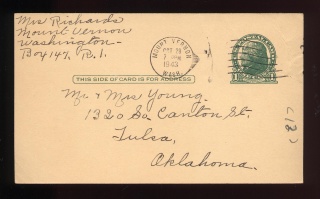 Mrs Richards
Mount Vernon
Washington-
Box 147, R.1.
MOUNT VERNON
OCT 29
7 PM
1943
WASH.
THIS SIDE OF CARD IS FOR ADDRESS
Mr & Mrs Young.
1320 So. Canton St.
Tulsa,
Oklahoma.
(12)